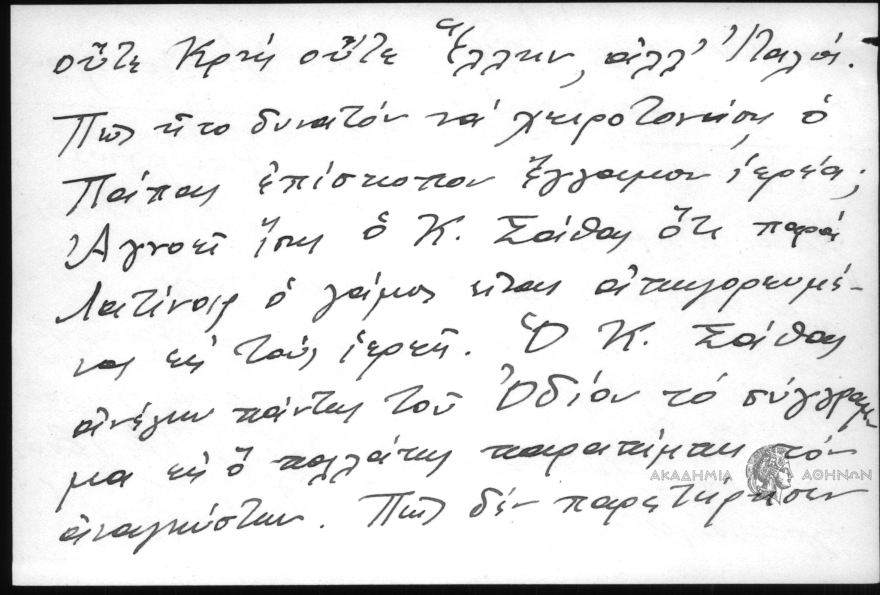 οὔτε Κρής οὔτε Ἕλλην, ἀλλ' Ἰταλός.
Πῶς ἦτο δυνατόν νά χειροτονήσῃ ὁ
Πάπας ἐπίσκοπον ἔγγαμον ἱερέα;
Ἀγνοεῖ ἴσως ὁ Κ. Σάθας ὅτι παρά
Λατίνοις ὁ γάμος εἶναι ἀπηγορευμέ-
νος εἰς τούς ἱερεῖς. Ὁ Κ. Σάθας
ἀνέγνω πάντως τοῦ Ὁδίου τό σύγγραμ
μα εἰς ὅ πολλάκις παραπέμπει τόν
ἀναγνώστην. Πῶς δέν παρετήρησεν
ΑΚΑΔΗΜΙΑ ΑΘΗΝΩΝ